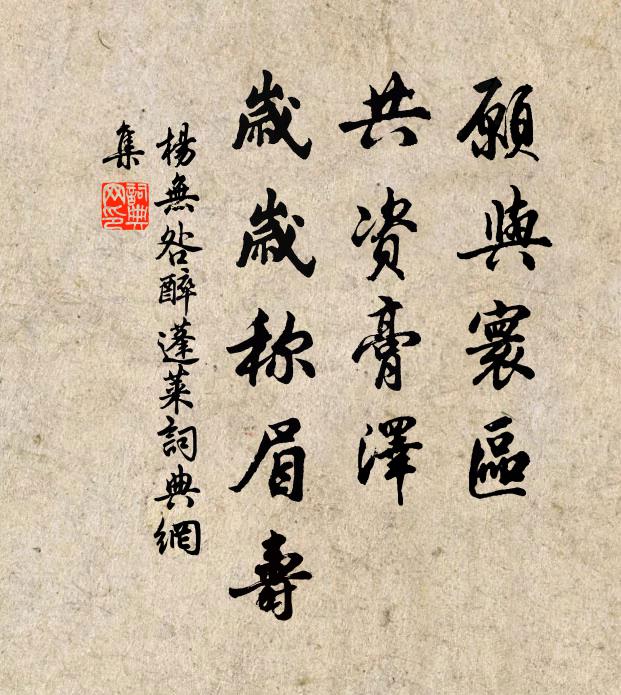 願與寰區
共资膏澤
歲歲称眉壽
楊無咎醉蓬莱詞典網
集
詞典
网印